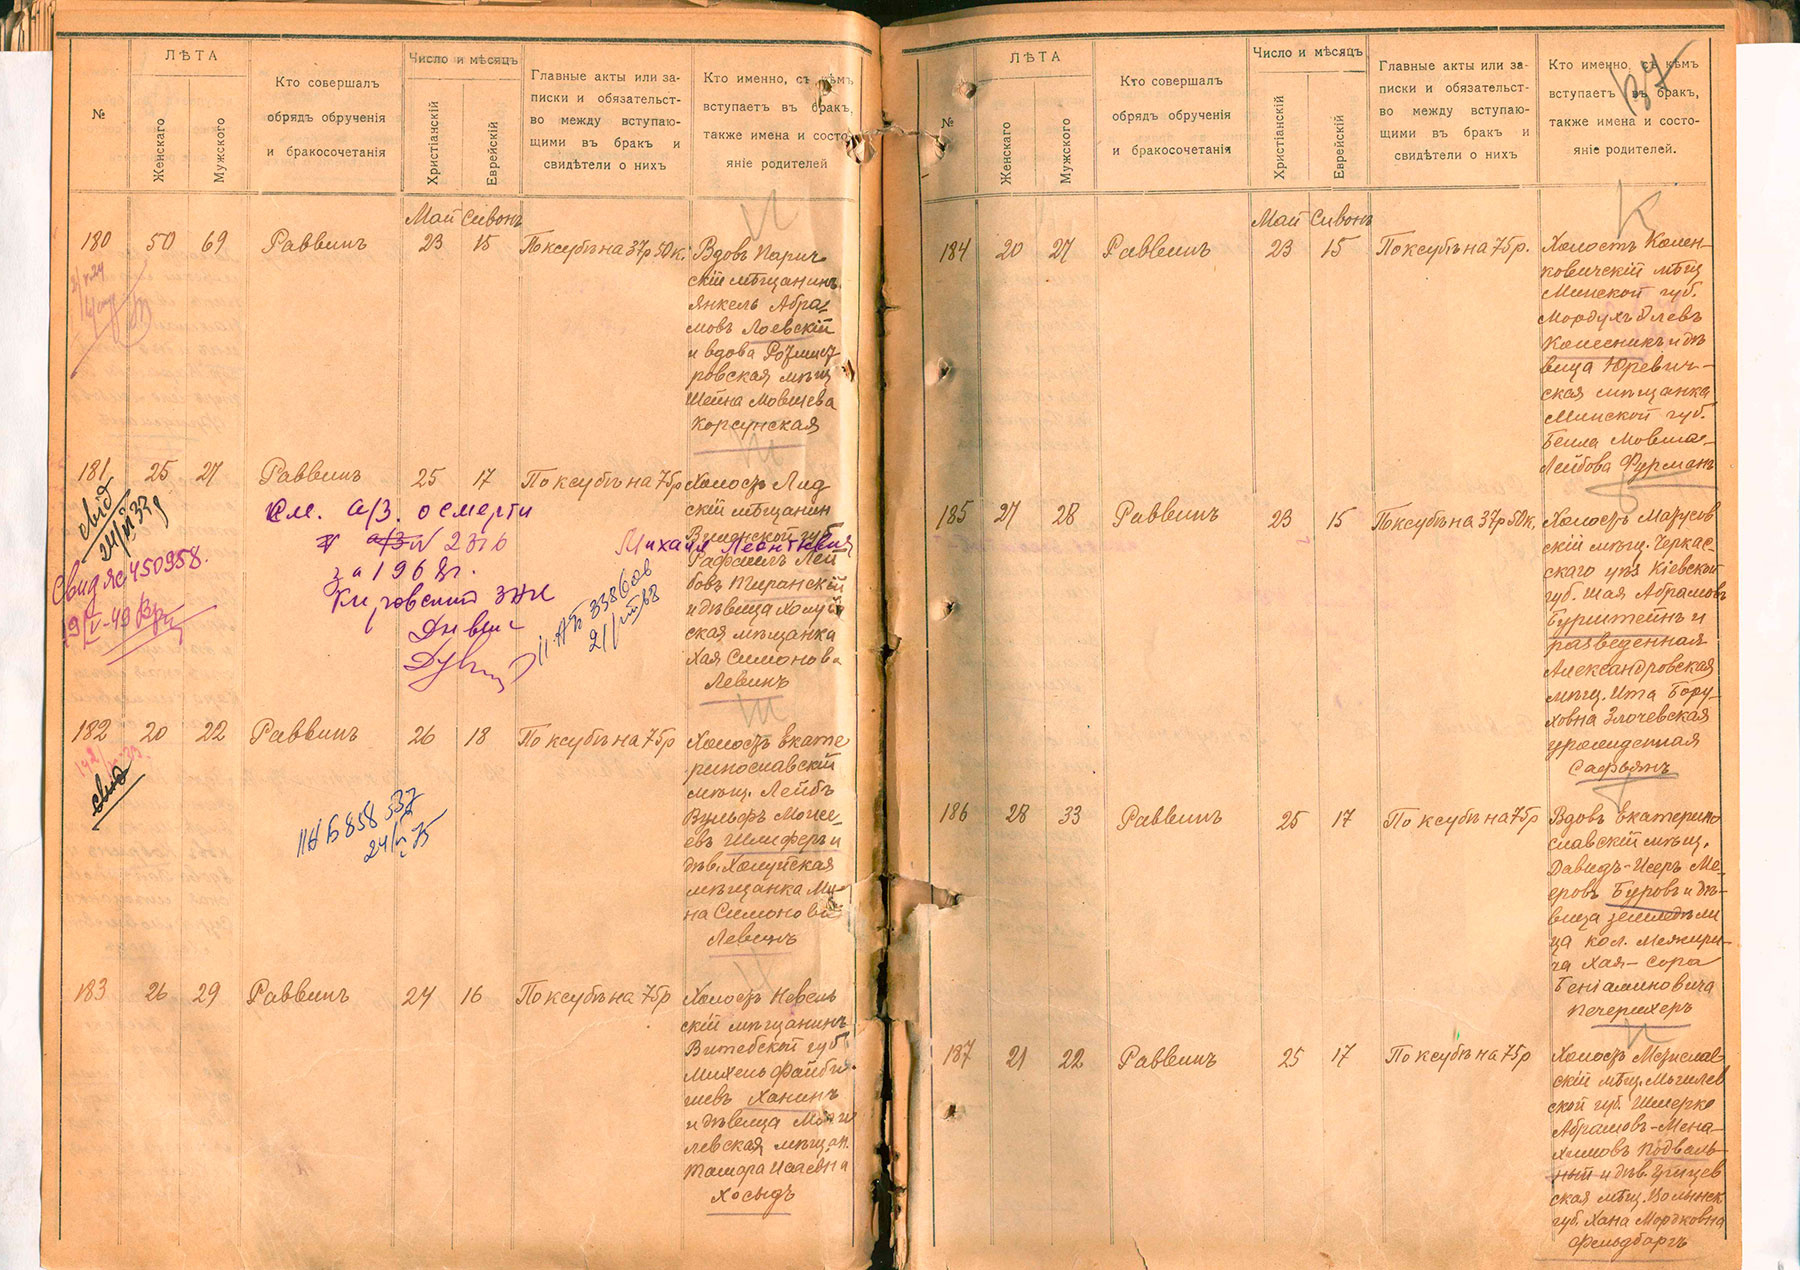 №
ЛѢТА
Женскаго
Мужского
Кто совершалъ
обрядъ обрученія
и бракосочетанія
Число и мѣсяцъ
Христіанскій
Еврейскій
Главные акты или за-
писки и обязательст-
во между вступаю-
щими въ бракъ и
свидѣтели о нихъ
Кто именно, съ кѣмъ
вступаетъ въ бракъ,
также имена и состо-
яніе родителей
Май Сивонъ
180 50 69 Раввинъ 23 15 По ксубѣ на 37р 50к.
Вдовъ Парич
скій мѣщанинъ
Янкель Абра-
мовъ Лоевскій
и вдова
ровская мѣщ
Шейна Мовшева
Корсунская
181 25 27 Раввинъ 25 17 По ксубѣ на 75р
Холостъ Лид
скій мѣщанин
Виленской губ
Рафаилъ Лей
бовъ Пиранскій
и дѣвица Холуй
ская мѣщанка
Хая Симонова
Левинъ
свід
24/VI 33
Свид яс 450958.
19/V-49
См. а/з. о смерти
а/з N 2376
за 1968г.
Кировский
Михаил Леонтиевич
II АБ 338608
21/VIII 68
182 20 22 Раввинъ 26 18 По ксубѣ на 75р
Холостъ Екате
ринославскій
мѣщ. Лейбъ
Вульфъ Моисе-
евъ Шлиферъ и
дѣв. Холуйская
мѣщанка Ми-
на Симонова
Левинъ
II АБ 858537
24/VI 75
183 26 29 Раввинъ 24 16 По ксубѣ на 75р
Холостъ Невель
скій мѣщанинъ
Витебской губ
Михель Файби-
шевъ Ханинъ
и дѣвица Моги
левская мѣщан.
Тамара Исаевна
Хосыдъ
137
№
ЛѢТА
Женскаго
Мужского
Кто совершалъ
обрядъ обрученія
и бракосочетанія
Число и мѣсяцъ
Христіанскій
Еврейскій
Главные акты или за-
писки и обязательст-
во между вступаю-
щими въ бракъ и
свидѣтели о нихъ
Кто именно, съ кѣмъ
вступаетъ въ бракъ,
также имена и состо-
яніе родителей.
К
Май Сивонъ
184 20 27 Раввинъ 23 15 По ксубѣ на 75р.
Холостъ Кален-
ковичскій мѣщ
Минской губ.
Мордухъ Олевъ
Колесникъ и дѣ
вица Юревич-
ская мѣщанка
Минской губ.
Бейла Мовша-
Лейбова Фурманъ
185 27 28 Раввинъ 23 15 По ксубѣ на 37р 50к.
Холостъ Марусов
скій мѣщ. Черкас-
скаго уѣз Кіевской
губ. Шая Абрамовъ
Бурштейнъ и
разведенная
Александровская
мѣщ. Ита Бору-
ховна Злочевская
урожденная
Сафьянъ
186 28 33 Раввинъ 25 17 По ксубѣ на 75р
Вдовъ Екатерино
славскій мѣщ.
Давидъ-Исеръ Ме-
еровъ Буровъ и дѣ-
вица земледѣли
ца кол. Межири-
ча Хая-Сора
Беніаминовича
Печерихеръ
187 21 22 Раввинъ 25 17 По ксубѣ на 75р
Холостъ Мстислав
скій мѣщ. Могилев
ской губ. Шмерко
Абрамовъ-Мена-
химовъ Подваль-
ный и дѣв.
ская мѣщ. Волынск
губ. Хана Мордковна
Фельдбаргъ